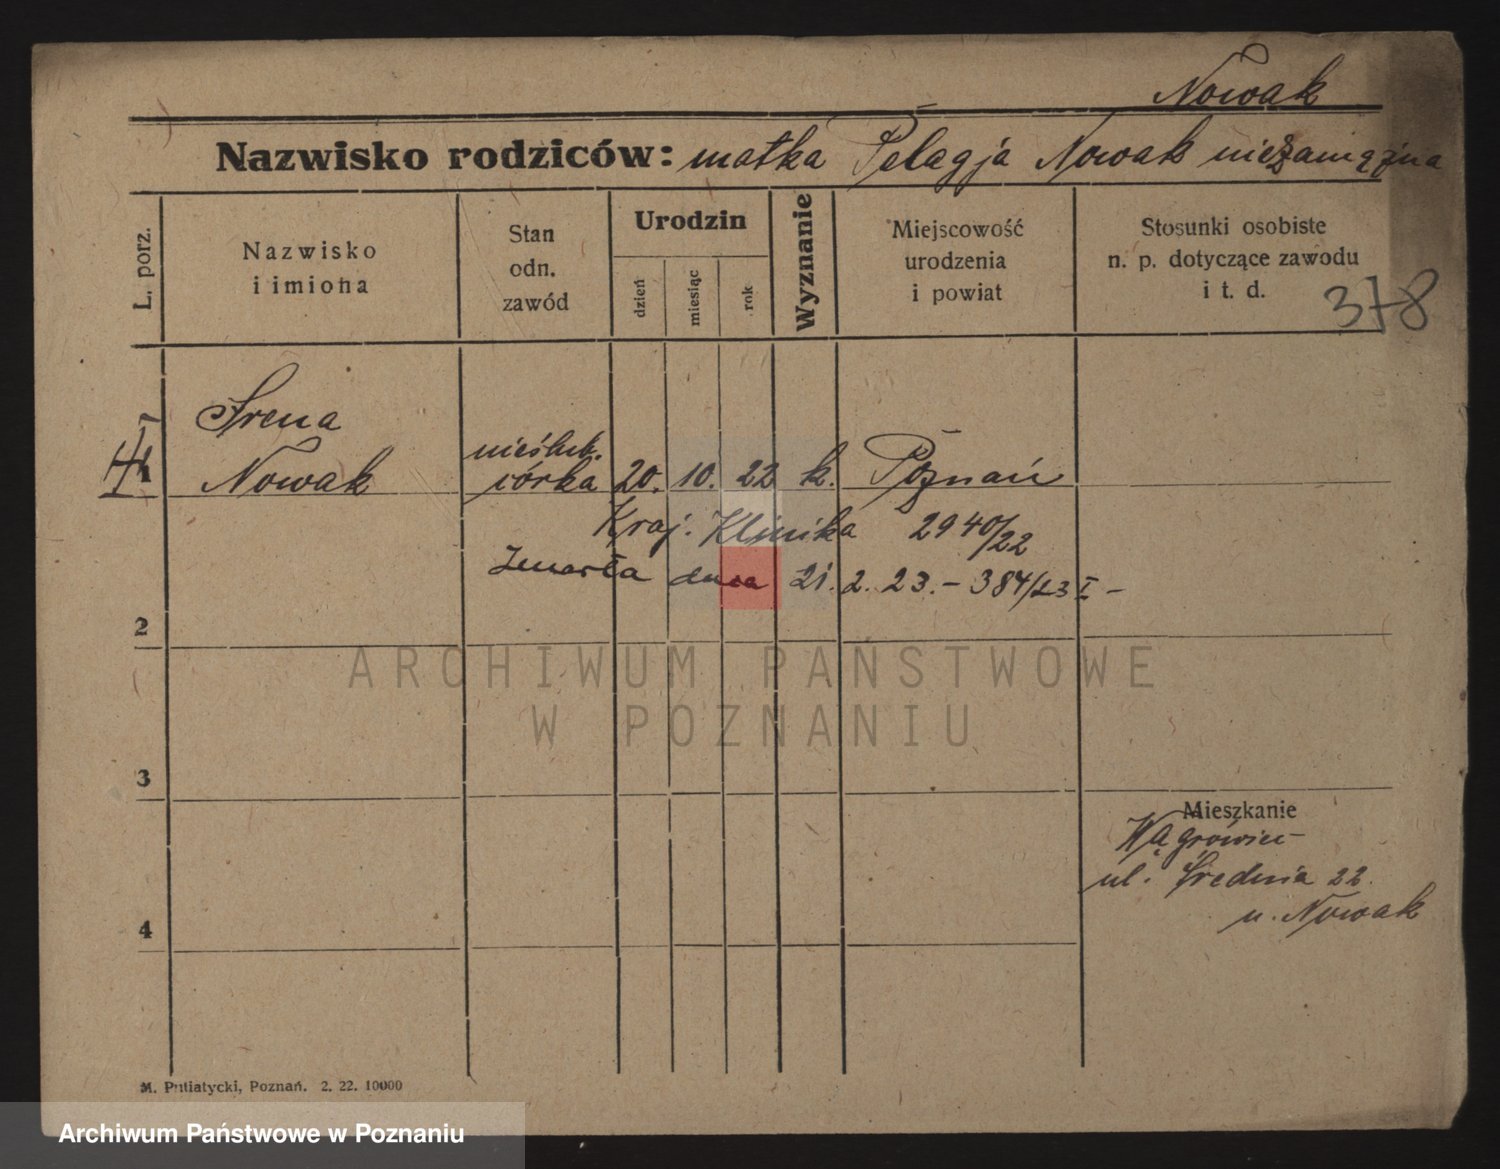 Nowak
Nazwisko rodziców: matka Pelagja Nowak niezamężna
L. porz.
Nazwisko i imiona
Stan odn. zawód
Urodzin
dzień
miesiąc
rok
Wyznanie
Miejscowość urodzenia i powiat
Stosunki osobiste n. p. dotyczące zawodu i t. d.
378
1
Irena
Nowak
nieślub.
córka 20. 10. 22 k. Poznań
Kraj. Klinika 2940/22
Zmarła dnia 21. 2. 23. – 384/23 I –
2
ARCHIWUM PAŃSTWOWE
W POZNANIU
3
Mieszkanie
Wągrówiec
ul. Średnia 22
u. Nowak
4
M. Putiatycki, Poznań. 2. 22. 10000
Archiwum Państwowe w Poznaniu